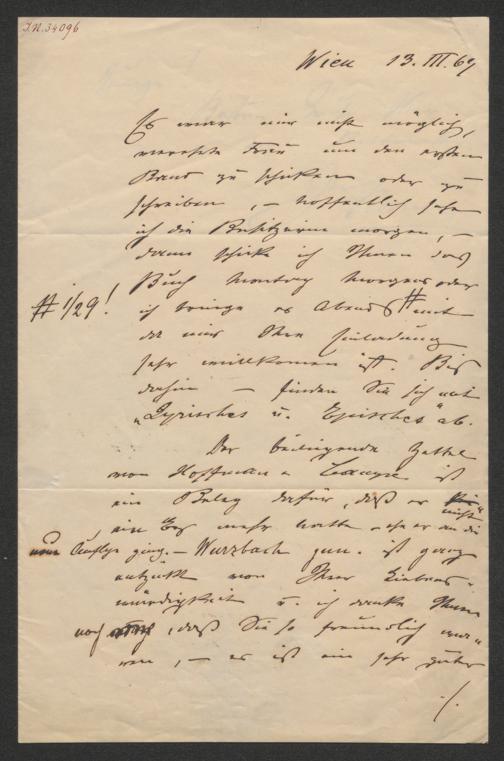 I.N. 34096
Wien 13. III. 69
Es war mir nicht möglich,
verehrte Frau um den ersten
Band zu schicken oder zu
schreiben, – hoffentlich sehe
ich die Besitzerin morgen, –
dann schicke ich Ihnen das
Buch Montag Morgens oder
# 1/29!
ich bringe es Abends # mit
da mir Ihre Einladung
sehr willkommen ist. Bis
dahin – finden Sie sich mit
„Lyrisches u. Episches" ab.
Der beiliegende Zettel
von Hoffmann u Campe ist
ein Beleg dafür, daß er
nicht
ein Ex mehr hatte – eh er an die
neue Auflage ging. – Wurzbach ist ganz
entzückt von Ihrer Liebens-
würdigkeit u. ich danke Ihnen
noch, daß Sie so freundlich wa-
ren, – er ist ein sehr guter
./.